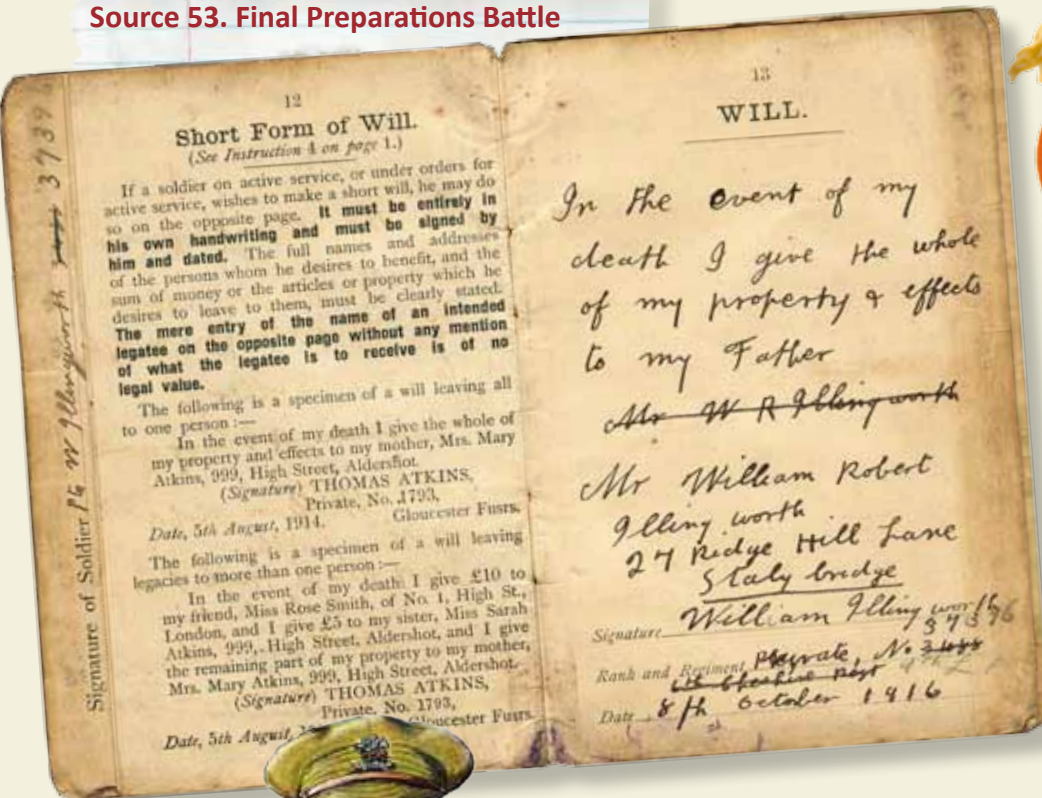 Source 53. Final Preparations Battle
12
Short Form of Will.
(See Instruction 4 on page 1.)
If a soldier on active service, or under orders for
active service, wishes to make a short will, he may do
so on the opposite page. It must be entirely in
his own handwriting and must be signed by
him and dated. The full names and addresses
of the persons whom he desires to benefit, and the
sum of money or the articles or property which he
desires to leave to them, must be clearly stated.
The mere entry of the name of an intended
legatee on the opposite page without any mention
of what the legatee is to receive is of no
legal value.
The following is a specimen of a will leaving all
to one person :—
In the event of my death I give the whole of
my property and effects to my mother, Mrs. Mary
Atkins, 999, High Street, Aldershot.
(Signature) THOMAS ATKINS,
Private, No. 1793,
Gloucester Fusrs.
Date, 5th August, 1914.
The following is a specimen of a will leaving
legacies to more than one person :—
In the event of my death I give £10 to
my friend, Miss Rose Smith, of No. 1, High St.,
London, and I give £5 to my sister, Miss Sarah
Atkins, 999, High Street, Aldershot, and I give
the remaining part of my property to my mother,
Mrs. Mary Atkins, 999, High Street, Aldershot.
(Signature) THOMAS ATKINS,
Private, No. 1793,
Gloucester Fusrs.
Date, 5th August,
Signature of Soldier Pte W Illingworth 3939
13
WILL.
In the event of my
death I give the whole
of my property & effects
to my Father
Mr W R Illingworth
Mr William Robert
Illingworth
27 Ridge Hill Lane
Stalybridge
Signature William Illingworth
Rank and Regiment Private, No
Cheshire Regt
Date 8th October 1916